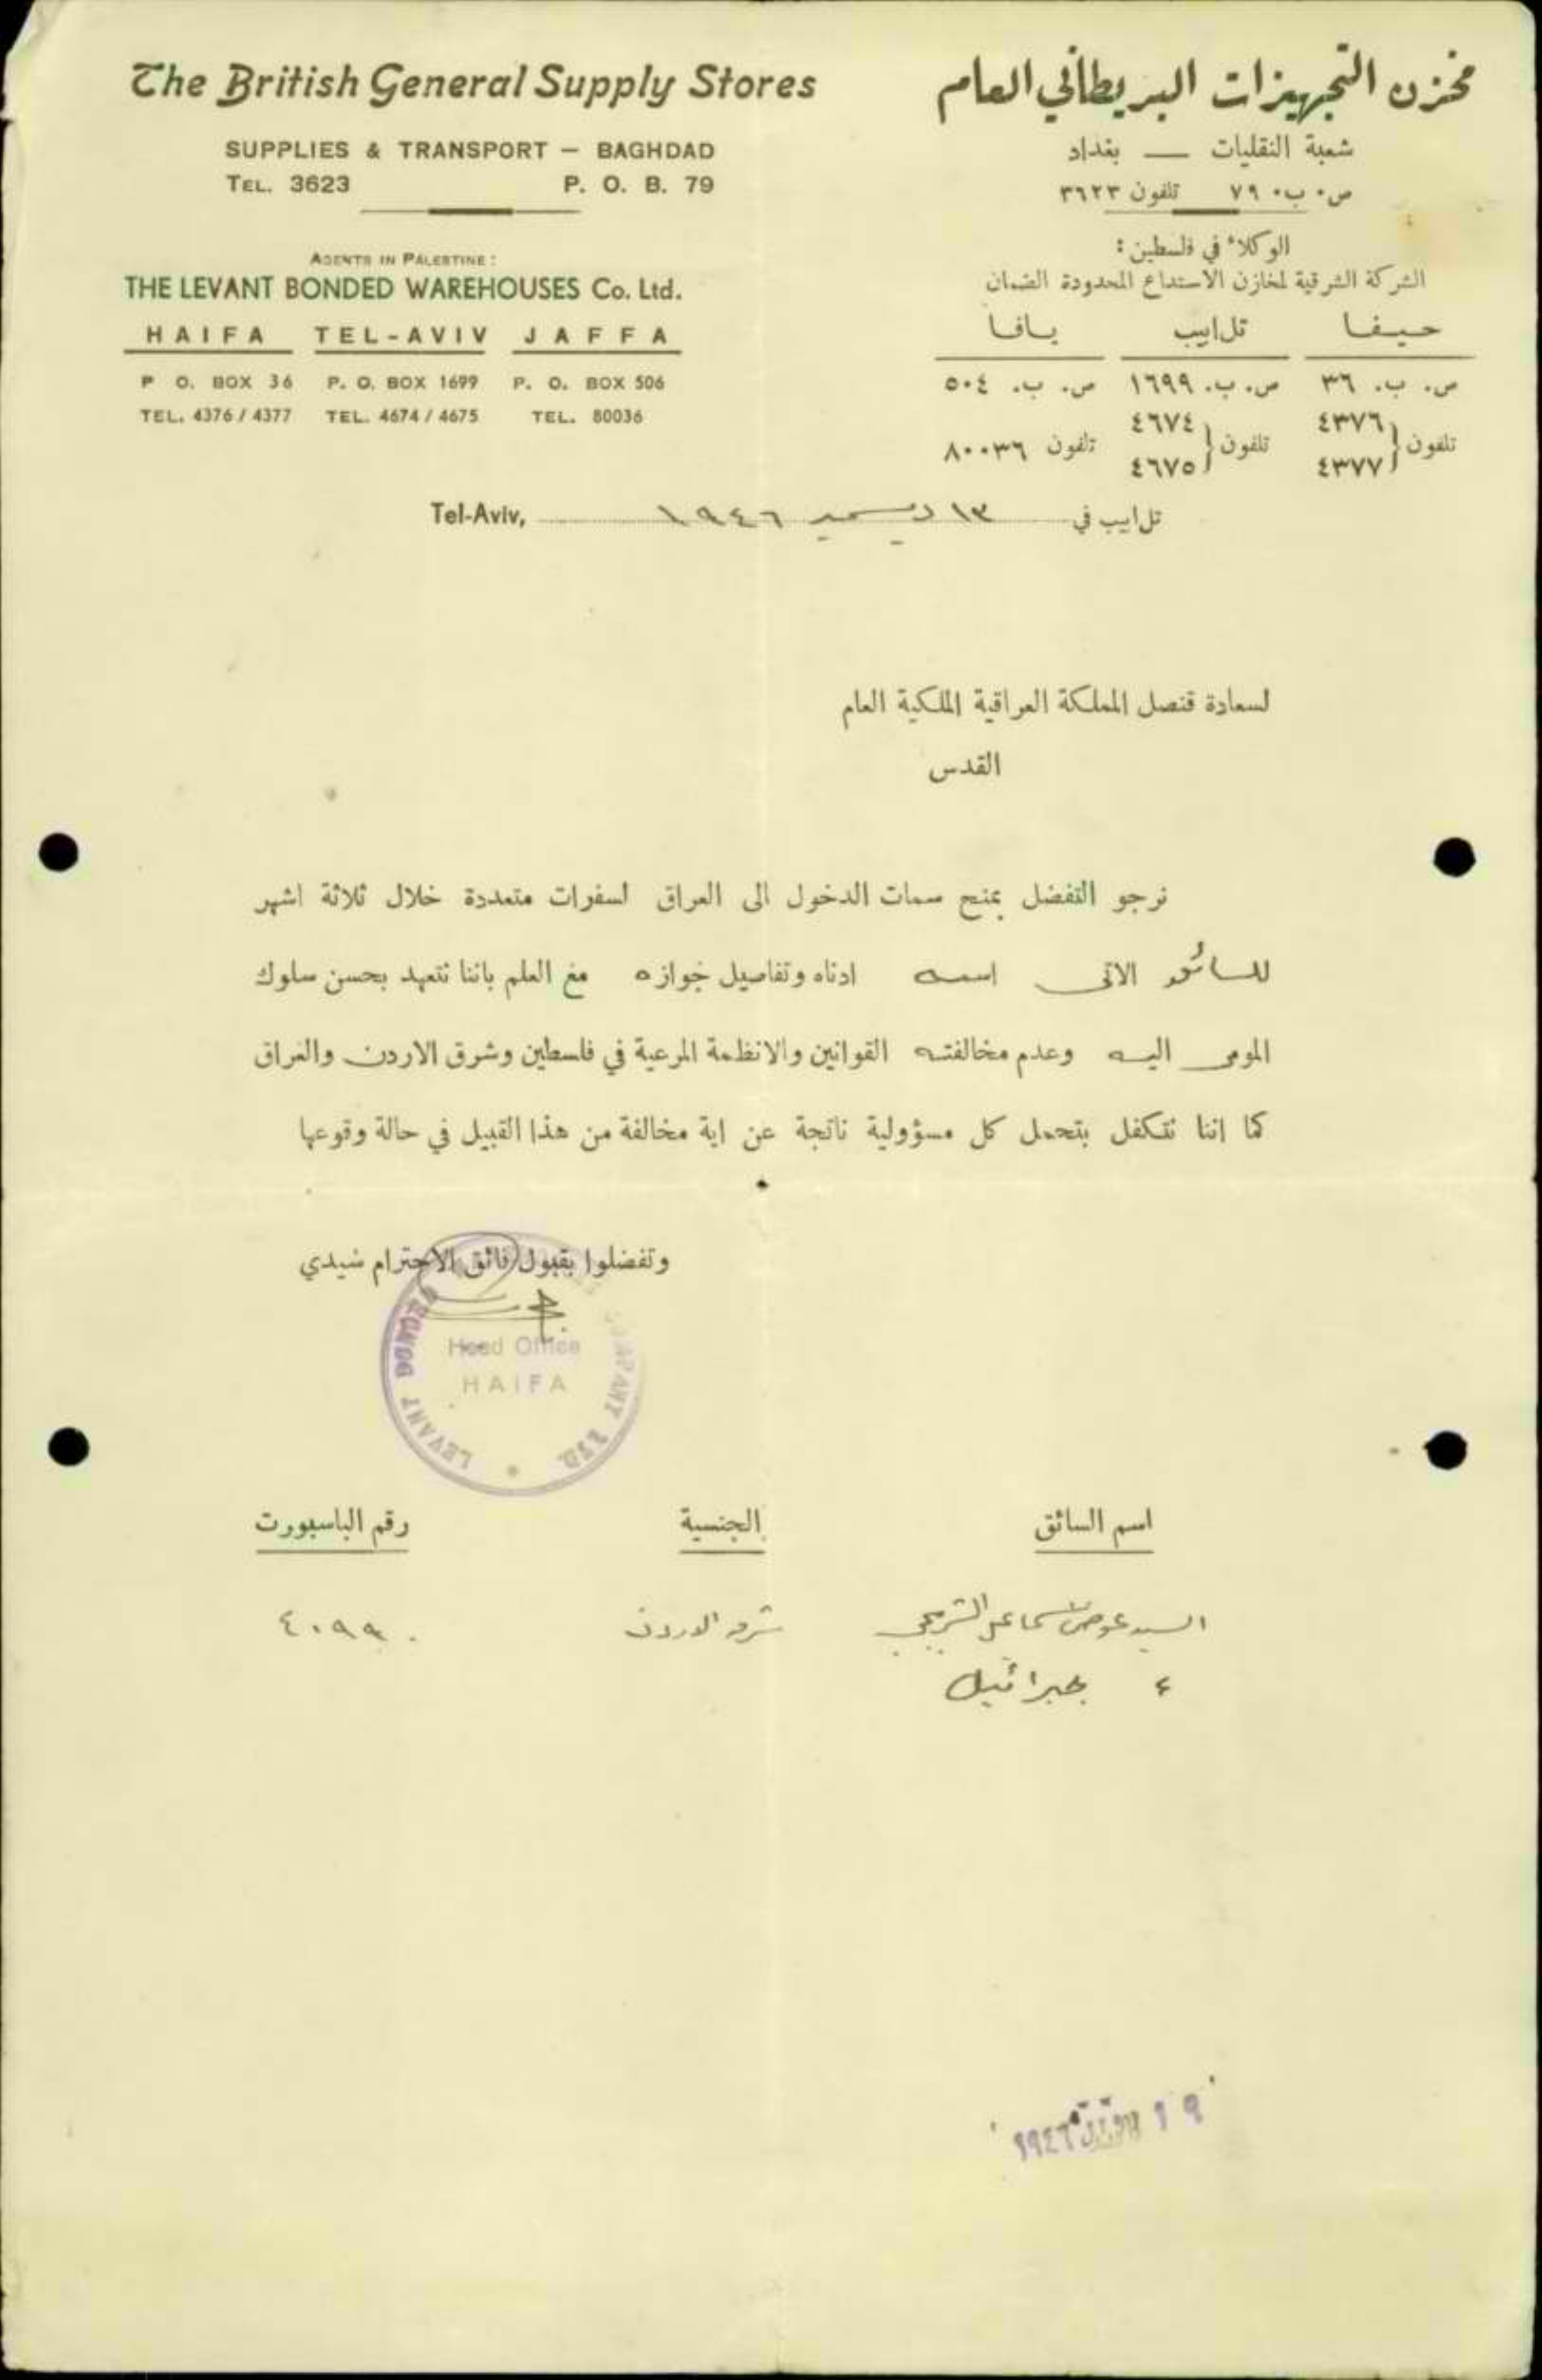 The British General Supply Stores
SUPPLIES & TRANSPORT — BAGHDAD
TEL. 3623 P. O. B. 79
AGENTS IN PALESTINE:
THE LEVANT BONDED WAREHOUSES Co. Ltd.
HAIFA TEL-AVIV JAFFA
P O. BOX 36 P. O. BOX 1699 P. O. BOX 506
TEL. 4376 / 4377 TEL. 4674 / 4675 TEL. 80036
مخزن التجهيزات البريطاني العام
شعبة النقليات — بغداد
ص. ب. ٧٩ تلفون ٣٦٢٣
الوكلاء في فلسطين:
الشركة الشرقية لمخازن الاستداع المحدودة الضمان
حيفا تل ابيب يافا
ص. ب. ٣٦ ص. ب. ١٦٩٩ ص. ب. ٥٠٤
تلفون { ٤٣٧٦ ٤٣٧٧ تلفون { ٤٦٧٤ ٤٦٧٥ تلفون ٨٠٠٣٦
Tel-Aviv, ١٣ ديسمبر ١٩٤٦ تل ابيب في
لسعادة قنصل المملكة العراقية الملكية العام
القدس
نرجو التفضل بمنح سمات الدخول الى العراق لسفرات متعددة خلال ثلاثة اشهر
للسائق الاتي اسمه ادناه وتفاصيل جوازه مع العلم باننا نتعهد بحسن سلوك
المومى اليه وعدم مخالفته القوانين والانظمة المرعية في فلسطين وشرق الاردن والعراق
كما اننا نتكفل بتحمل كل مسؤولية ناتجة عن اية مخالفة من هذا القبيل في حالة وقوعها
.
وتفضلوا بقبول فائق الاحترام سيدي
Head Office
HAIFA
LEVANT BONDED
LTD.
اسم السائق الجنسية رقم الباسبورت
السيد عوض اسماعيل شرق الاردن ٤٠٩٩٠
جبرائيل
١٩ ١٩٤٦